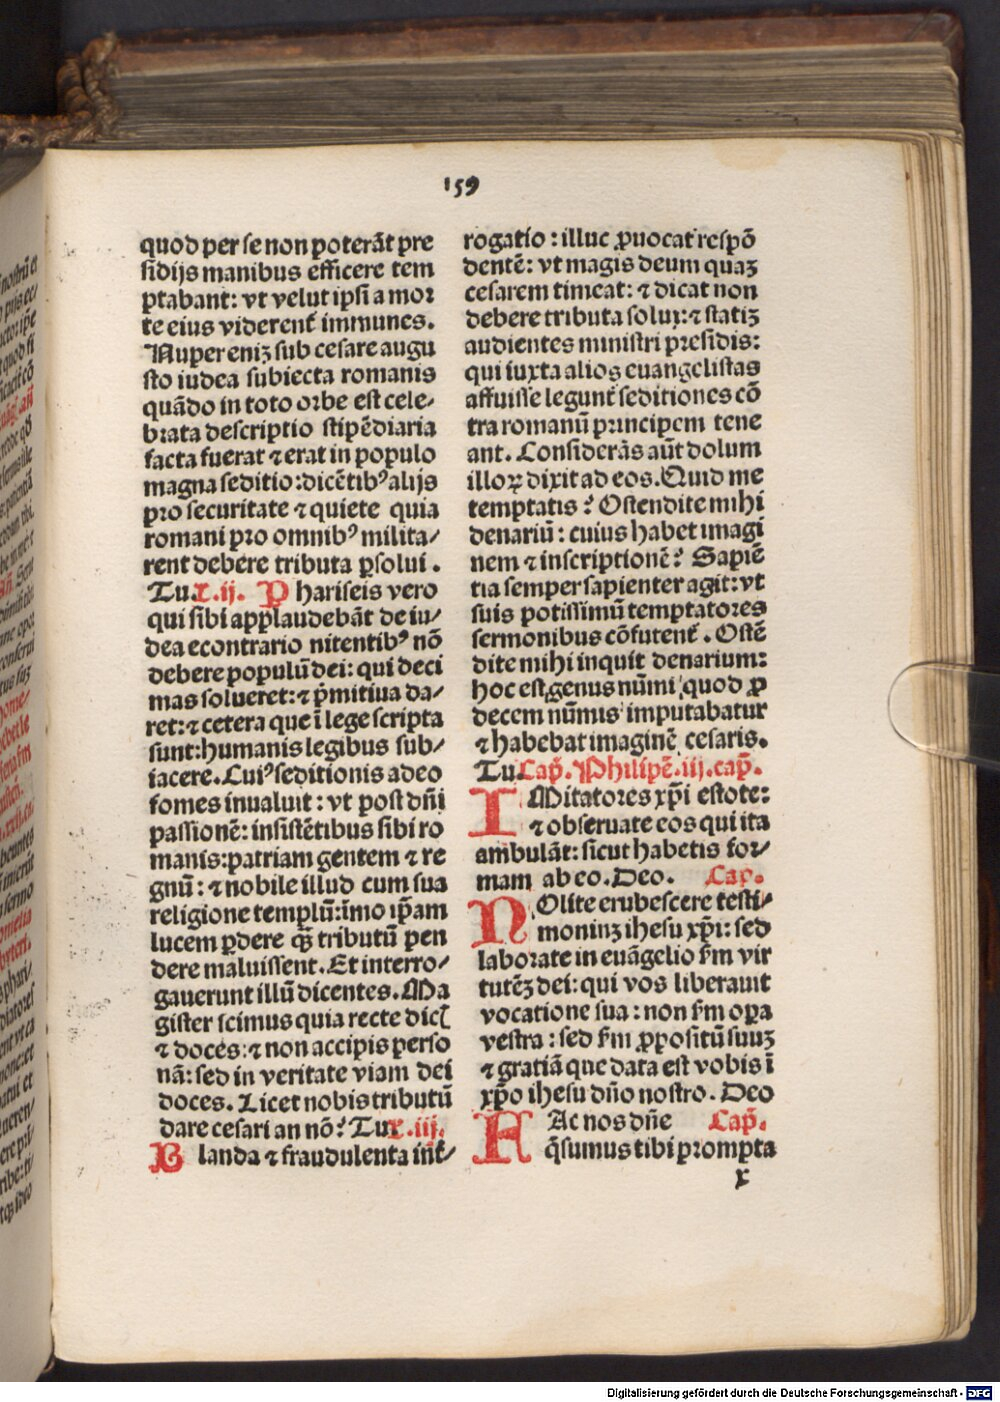 159
quod per se non poterāt pre
sidijs manibus efficere tem
ptabant: vt velut ipsi a mor
te eius viderent̄ immunes.
Nuper eniꝫ sub cesare augu
sto iudea subiecta romanis
quādo in toto orbe est cele/
brata descriptio stipēdiaria
facta fuerat ⁊ erat in populo
magna seditio: dicētibꝰ alijs
pro securitate ⁊ quiete quia
romani pro omnibꝰ milita/
rent debere tributa ꝑsolui.
Tu. L.ij. Phariseis vero
qui sibi applaudebāt de iu/
dea econtrario nitentibꝰ nō
debere populū dei: qui deci
mas solueret: ⁊ p̄mitiua da/
ret: ⁊ cetera que ī lege scripta
sunt: humanis legibus sub/
iacere. Cuiꝰ seditionis adeo
fomes inualuit: vt post dn̄i
passionē: insistētibus sibi ro
manis: patriam gentem ⁊ re
gnū: ⁊ nobile illud cum sua
religione templū: īmo ip̄am
lucem ꝑdere q̄ꝫ tributū pen
dere maluissent. Et interro/
gauerunt illū dicentes. Ma
gister scimus quia recte dic̄
⁊ doces: ⁊ non accipis perso
nā: sed in veritate viam dei
doces. Licet nobis tributū
dare cesari an nō? Tu. L.iij.
Blanda ⁊ fraudulenta int̄/
rogatio: illuc ꝓuocat respō
dentē: vt magis deum quaꝫ
cesarem timeat: ⁊ dicat non
debere tributa solui: ⁊ statiꝫ
audientes ministri presidis:
qui iuxta alios euangelistas
affuisse legunt̄ seditiones cō
tra romanū principem tene
ant. Considerās aūt dolum
illoꝝ dixit ad eos. Quid me
temptatis? Ostendite mihi
denariū: cuius habet imagi
nem ⁊ inscriptionē? Sapiē
tia semper sapienter agit: vt
suis potissimū temptatores
sermonibus cōfutent̄. Ostē
dite mihi inquit denarium:
hoc est genus nūmi quod ꝓ
decem nūmis imputabatur
⁊ habebat imaginē cesaris.
Tu. Cap̄. Philipē. iij. cap̄.
IMitatores xp̄i estote:
⁊ obseruate eos qui ita
ambulāt: sicut habetis for/
mam ab eo. Deo. Cap.
NOlite erubescere testi/
moniuꝫ ihesu xp̄i: sed
laborate in euāgelio s̄m vir
tutēꝫ dei: qui vos liberauit
vocatione sua: non s̄m oꝑa
vestra: sed s̄m ꝓpositū suuꝫ
⁊ gratiā que data est vobis ī
xp̄o ihesu dn̄o nostro. Deo
FAc nos dn̄e Cap̄.
q̄sumus tibi prompta
x
Digitalisierung gefördert durch die Deutsche Forschungsgemeinschaft - DFG